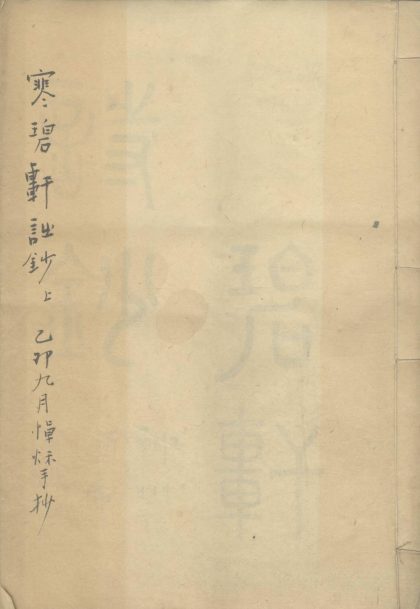 寒碧軒詩鈔上 乙卯九月憚秋手抄